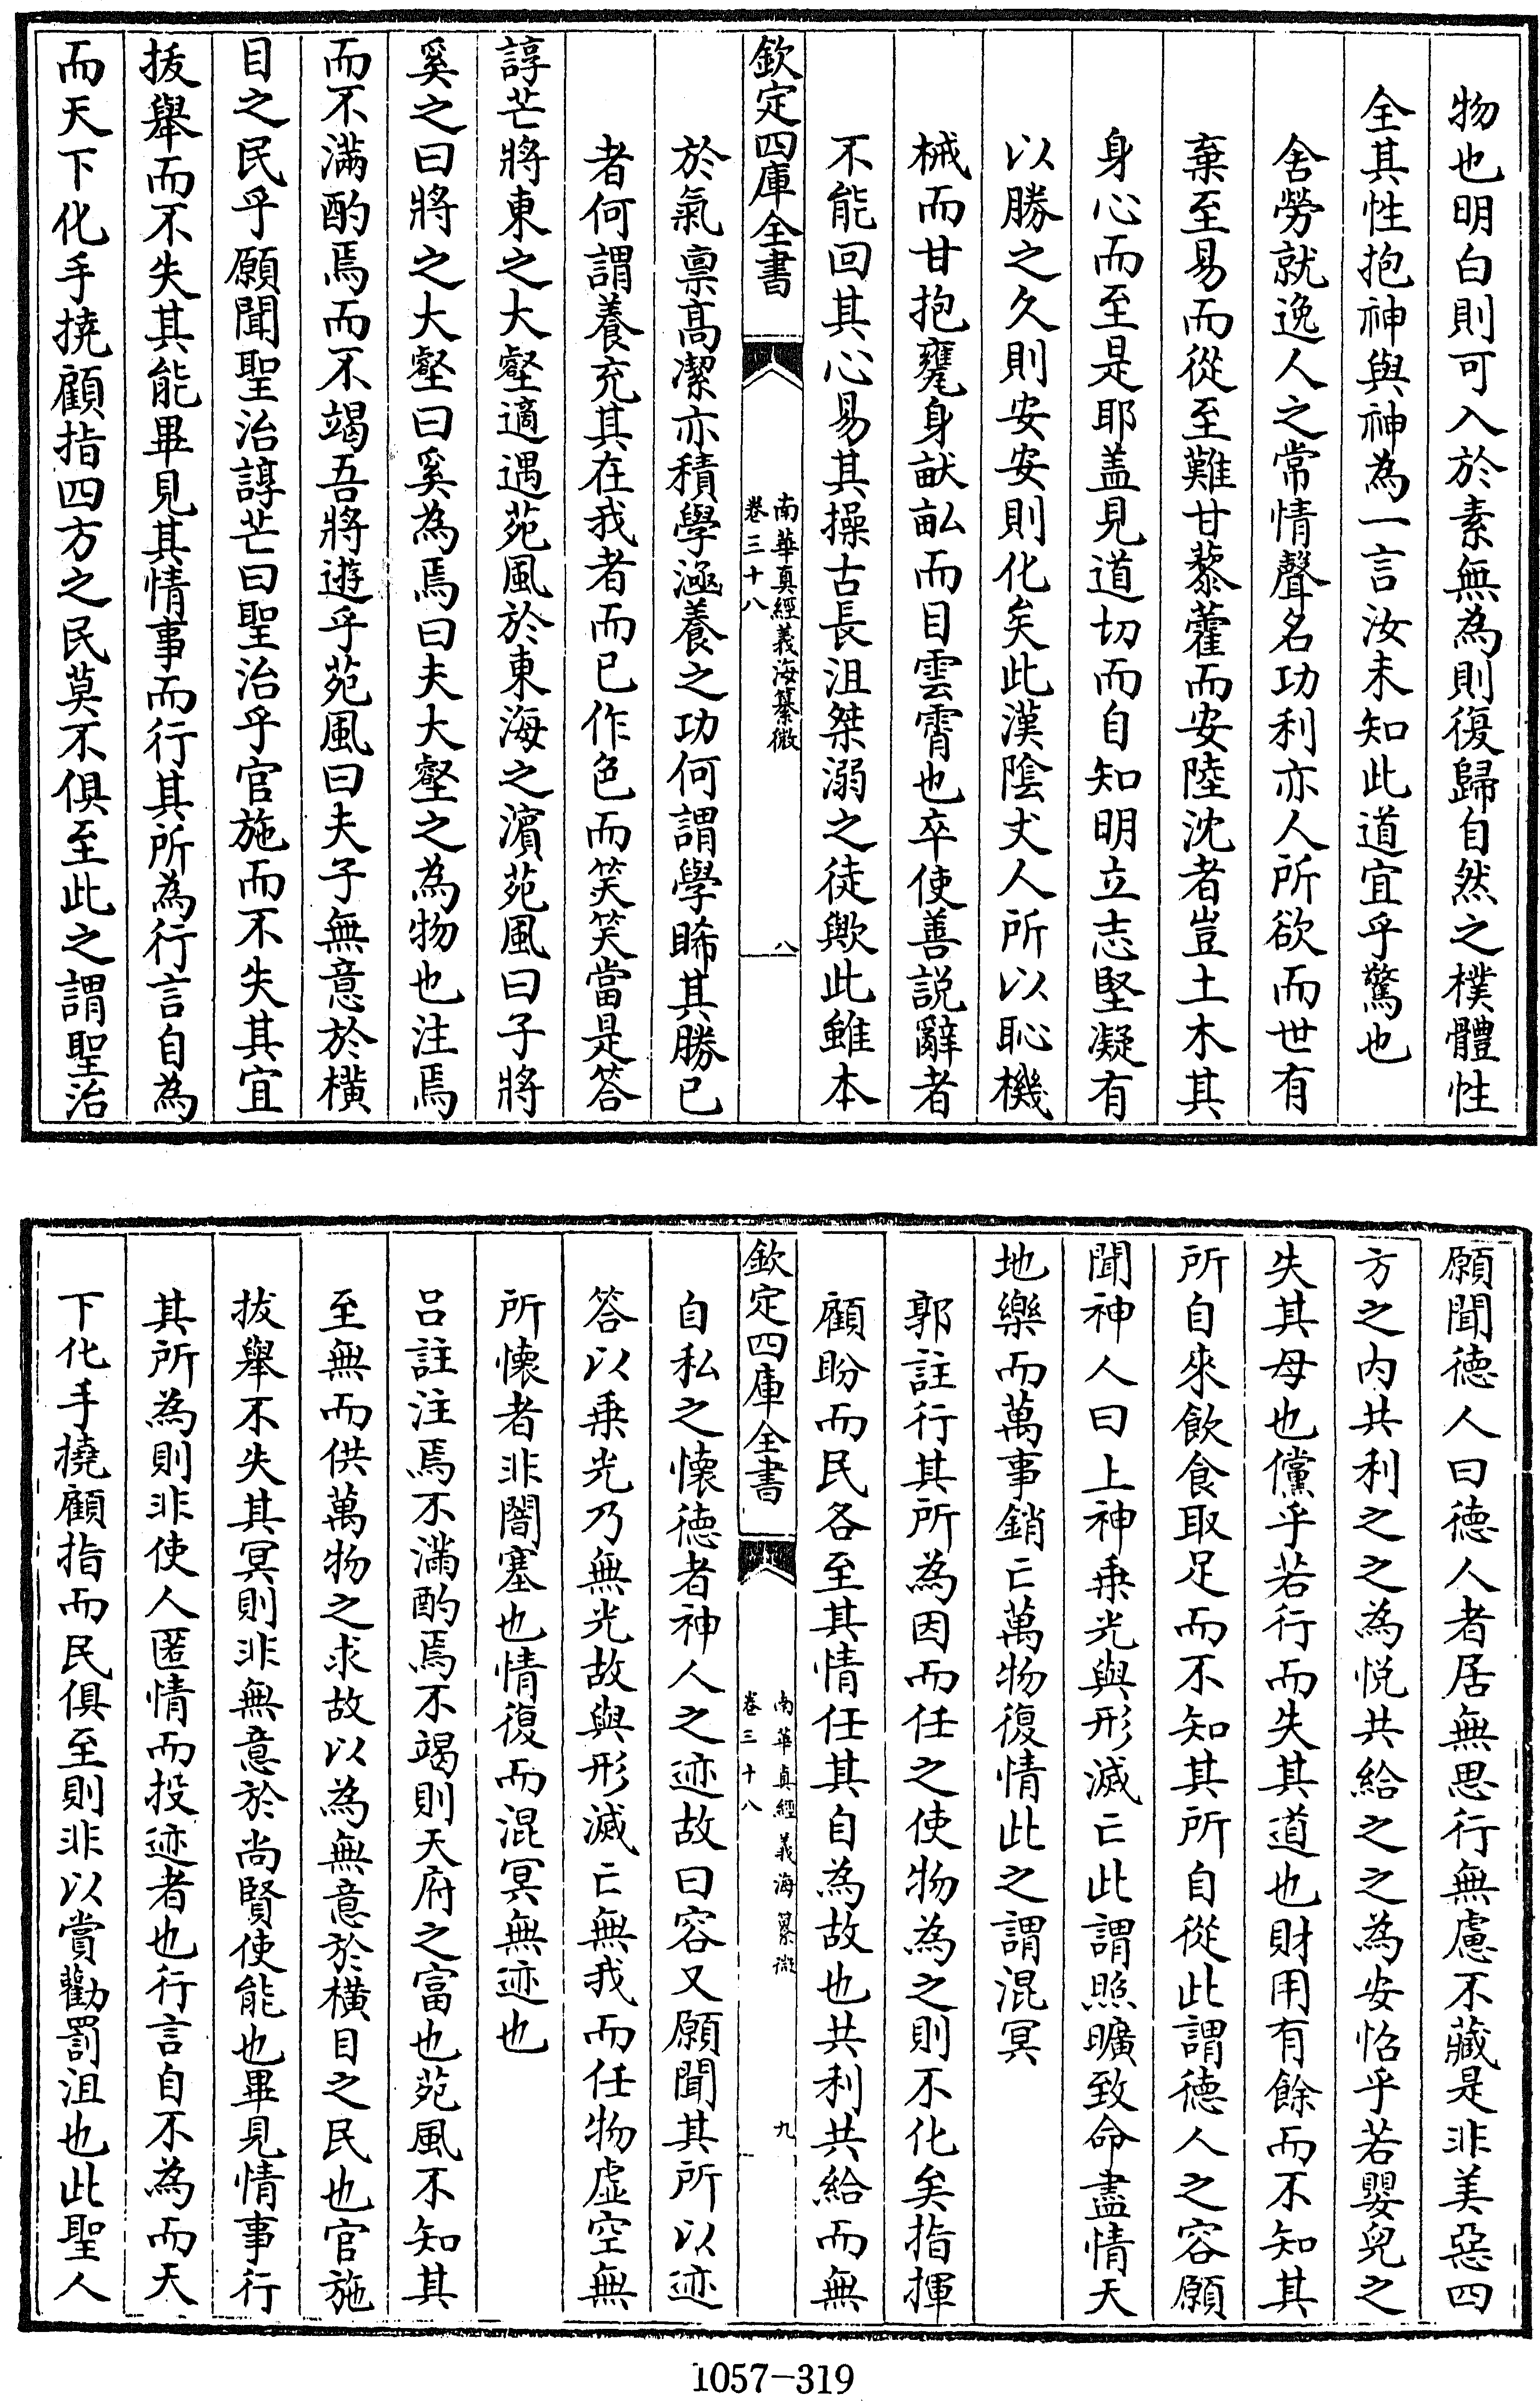 物也明白則可入於素無為則復歸自然之樸體性
全其性抱神與神為一言汝未知此道宜乎驚也
舍勞就逸人之常情聲名功利亦人所欲而世有
棄至易而從至難甘藜藿而安陸沈者豈土木其
身心而至是耶盖見道切而自知明立志堅凝有
以勝之久則安安則化矣此漢陰丈人所以恥機
械而甘抱甕身畎畝而目雲霄也卒使善説辭者
不能回其心易其操古長沮桀溺之徒歟此雖本
欽定四庫全書
南華真經義海纂微
卷三十八
八
於氣禀髙潔亦積學涵養之功何謂學睎其勝已
者何謂養充其在我者而已作色而笑笑當是答
諄芒將東之大壑適遇苑風於東海之濱苑風曰子將
奚之曰將之大壑曰奚為焉曰夫大壑之為物也注焉
而不滿酌焉而不竭吾將遊乎苑風曰夫子無意於橫
目之民乎願聞聖治諄芒曰聖治乎官施而不失其宜
拔舉而不失其能畢見其情事而行其所為行言自為
而天下化手撓顧指四方之民莫不俱至此之謂聖治
願聞德人曰德人者居無思行無慮不藏是非美惡四
方之内共利之之為悦共給之之為安怊乎若嬰兒之
失其母也儻乎若行而失其道也財用有餘而不知其
所自來飲食取足而不知其所自從此謂德人之容願
聞神人曰上神乗光與形滅亡此謂照曠致命盡情天
地樂而萬事銷亡萬物復情此之謂混冥
郭註行其所為因而任之使物為之則不化矣指揮
顧盼而民各至其情任其自為故也共利共給而無
欽定四庫全書
南華真經義海纂微
卷三十八
九
自私之懐德者神人之迹故曰容又願聞其所以迹
答以乗光乃無光故與形滅亡無我而任物虚空無
所懐者非闇塞也情復而混冥無迹也
吕註注焉不滿酌焉不竭則天府之富也苑風不知其
至無而供萬物之求故以為無意於橫目之民也官施
拔舉不失其冥則非無意於尚賢使能也畢見情事行
其所為則非使人匿情而投迹者也行言自不為而天
下化手撓顧指而民俱至則非以賞勸罰沮也此聖人
1057-319